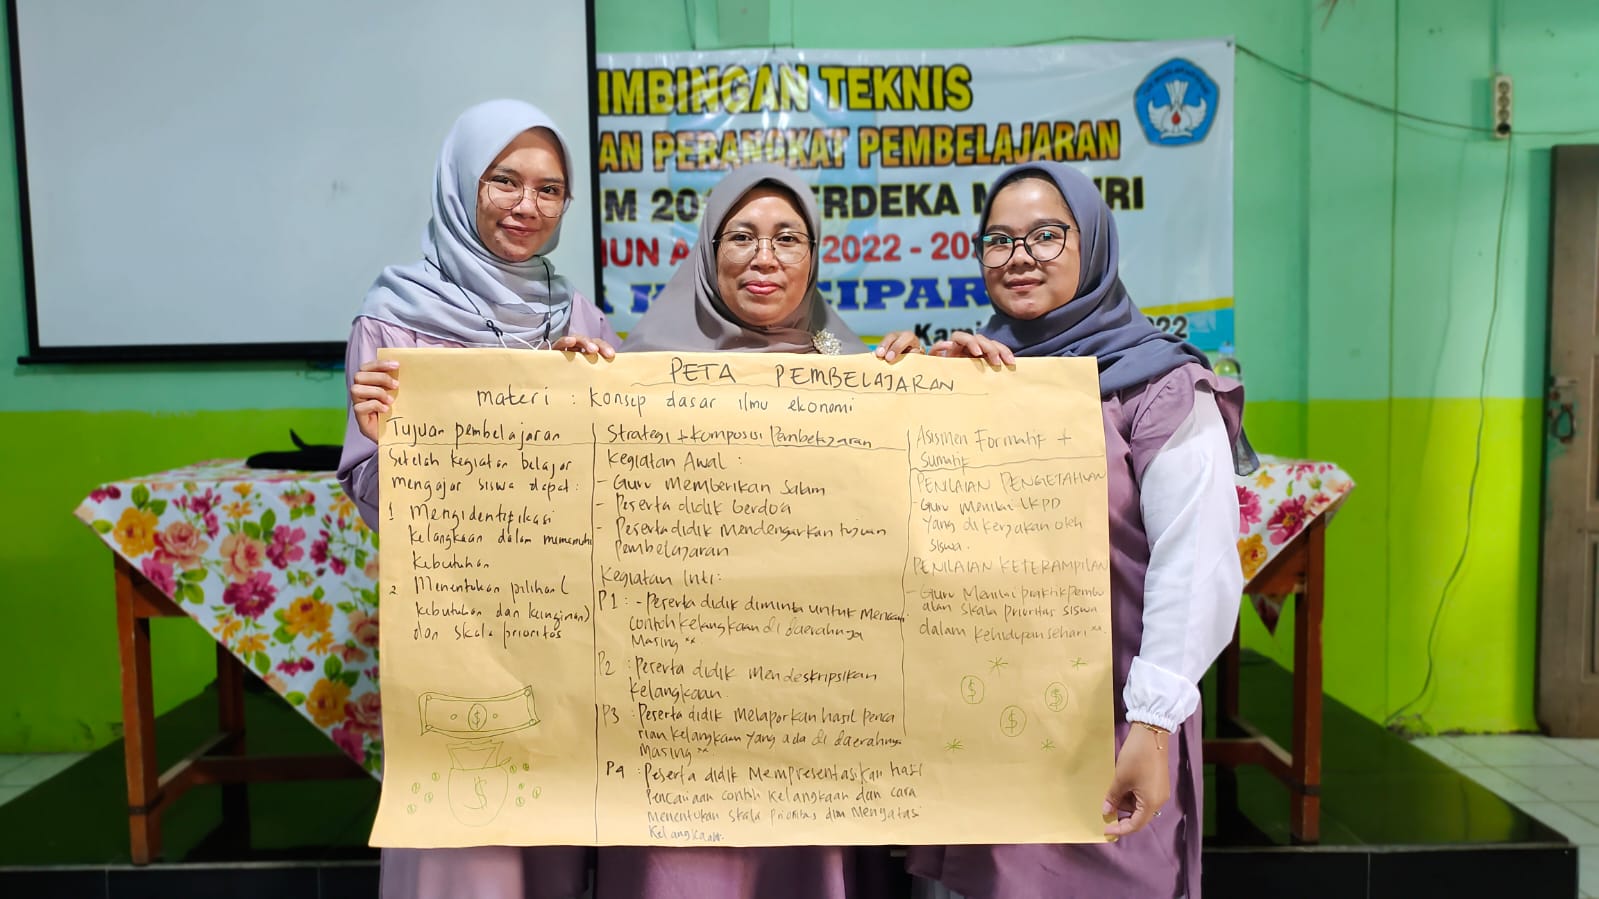 IMBINGAN TEKNIS
AN PERANGKAT PEMBELAJARAN
M 20 ERDEKA M RI
HUN A 2022 - 20
CIPAR
Kami 2022
PETA PEMBELAJARAN
Materi : Konsep dasar ilmu ekonomi
Tujuan pembelajaran
Setelah kegiatan belajar
mengajar siswa dapat :
1 Mengidentifikasi
kelangkaan dalam memenuhi
kebutuhan
2 Menentukan pilihan (
kebutuhan dan keinginan)
dan skala prioritas
Strategi + Komposisi Pembelajaran
Kegiatan Awal :
- Guru Memberikan Salam
- Peserta didik berdoa
- Peserta didik Mendengarkan tujuan
Pembelajaran
Kegiatan Inti :
P1 : - Peserta didik diminta untuk mencari
contoh kelangkaan di daerahnya
Masing "
P2 : Peserta didik Mendeskripsikan
kelangkaan.
P3 : Peserta didik Melaporkan hasil penca
rian kelangkaan yang ada di daerahnya
Masing "
P4 : Peserta didik Mempresentasikan hasil
Pencarian contoh kelangkaan dan cara
Menentukan skala prioritas dlm Mengatasi
Kelangkaan.
Asismen Formatif +
Sumatif
PENILAIAN PENGETAHUAN
- Guru Menilai LKPD
yang dikerjakan oleh
siswa.
PENILAIAN KETERAMPILAN
- Guru Menilai praktik pembu
atan skala prioritas siswa
dalam kehidupan sehari ".